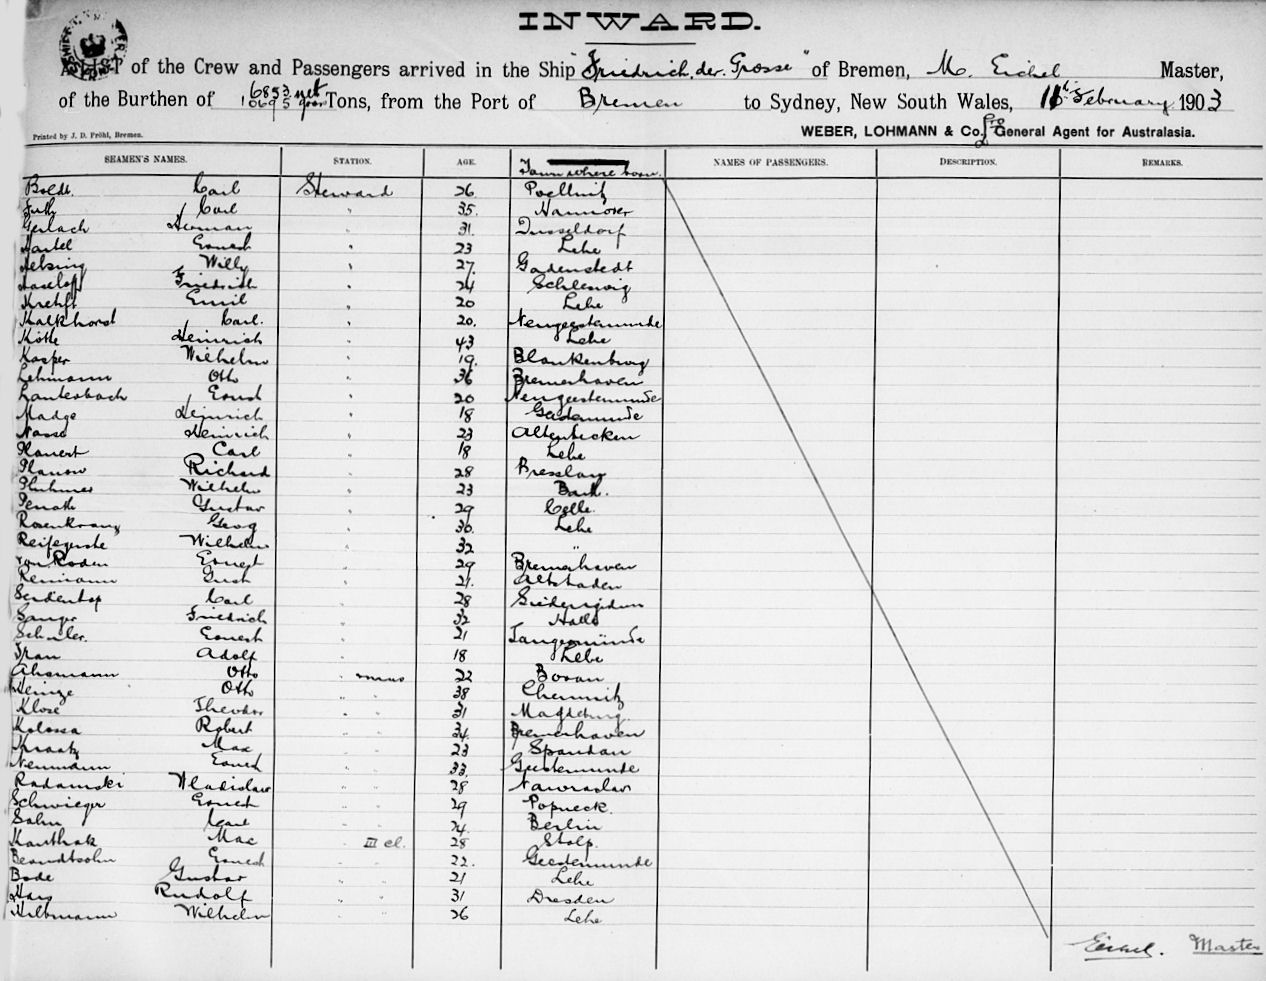 INWARD.
A LIST of the Crew and Passengers arrived in the Ship "Friedrich der Grosse" of Bremen, M. Eichel Master,
of the Burthen of 6853 net 10695 gross Tons, from the Port of Bremen to Sydney, New South Wales, February 1903
Printed by J. D. Fröhl, Bremen.
WEBER, LOHMANN & Co., General Agent for Australasia.
SEAMEN'S NAMES. STATION. AGE. Town where born. NAMES OF PASSENGERS. DESCRIPTION. REMARKS.
Boldt. Carl Steward 26 Poellnitz
Carl " 35. Hannover
Gerlach Herman " 31. Dusseldorf
Hartel Ernest " 23 Lehe
Helsing Willy " 27. Gadenstedt
Haseloff Friedrich " 24 Schleswig
Krehft Emil " 20 Lehe
Kalkhorst Carl. " 20. Neugeestemunde
Köthe Heinrich " 43 Lehe
Kasper Wilhelm " 19. Blankenburg
Lehmann Otto " 36 Bremerhaven
Lautesbach Ernst " 20 Neugeestemunde
Madge Heinrich " 18 Geestemunde
Nasse Heinrich " 23 Altenbecken
Planert Carl " 18 Lehe
Planow Richard " 28 Bresslau
Wilhelm " 23
Penath Gustav " 29 Celle.
Rosenkranz Georg " 30. Lehe
Reifegerste Wilhelm " 32 "
von Roden Ernest " 29 Bremerhaven
Reimann Gust " 21.
Carl " 28
Sanger Friedrich " 32 Halle
Schuler. Ernest " 21 Tangermünde
Tran Adolf " 18 Lehe
Ahsmann Otto " 22
Heinze Otto " " 38 Chemnitz
Klose Theodor " " 31 Magdeburg.
Kolossa Robert " " 34. Bremerhaven
Kraatz Max " " 23 Spandau
Neumann Ernest " " 33. Geestemunde
Radamski Wladislaw " " 28
Schwieger Ernest " " 29 Popneck.
Sohn Carl " " 24 Berlin
Manthak Max " III cl. 28 Stolp.
Brandtsohn Ernest " " 22. Geestemunde
Bode Gustav " " 21 Lehe
Hans Rudolf " " 31 Dresden
Hilbmann Wilhelm " " 26 Lehe
Eichel. Master